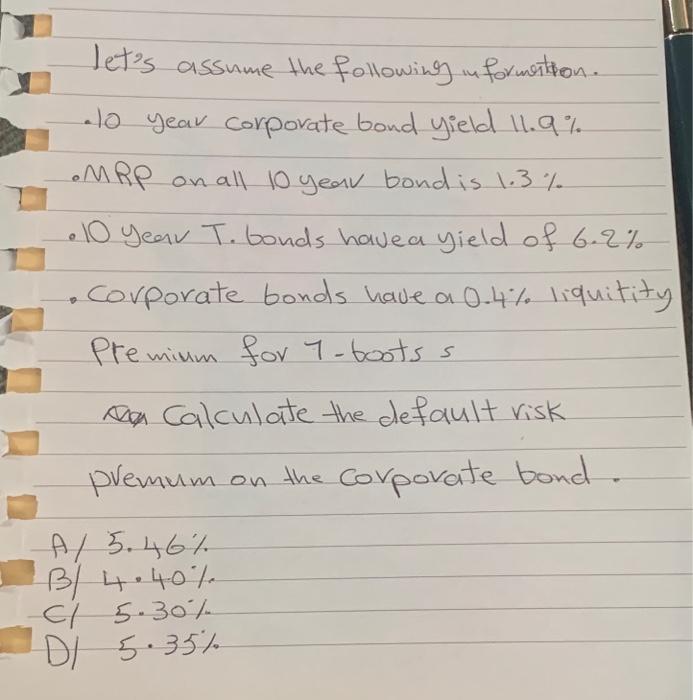 let's assume the following information.
.10 year corporate bond yield 11.9%
.MRP on all 10 year bond is 1.3%.
.10 year T. bonds have a yield of 6.2%
. Corporate bonds have a 0.4% liquitity
Premium for T-boots s
Calculate the default risk
premum on the corporate bond.
A/ 5.46%
B/ 4.40%
C/ 5.30%
D/ 5.35%